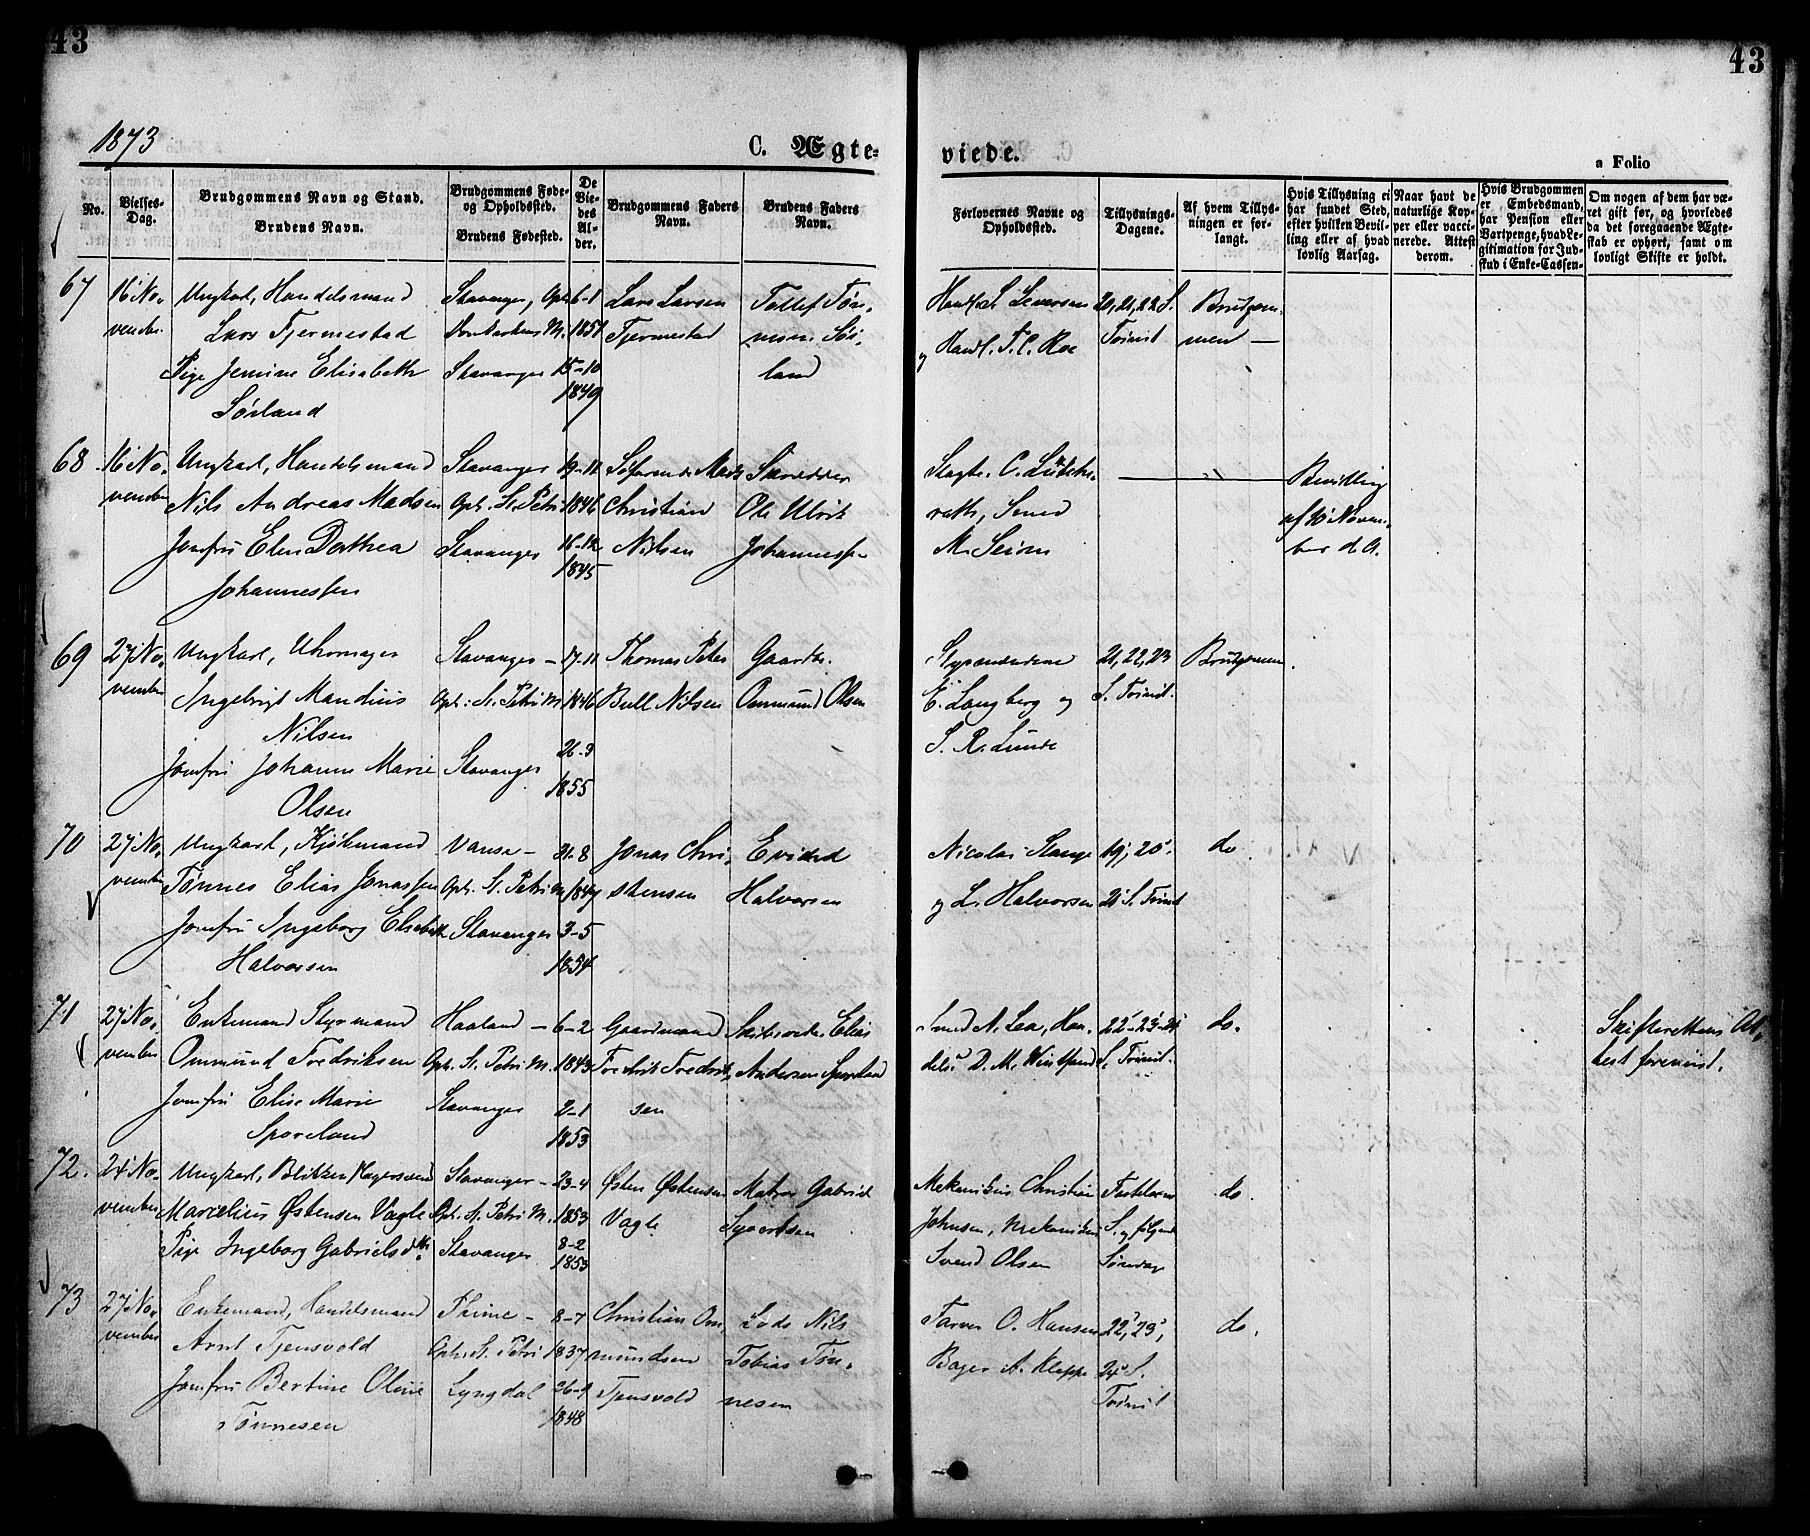 43
43
1873
C. Ægte-
viede.
a Folio
No.
Vielses-
Dag.
Brudgommens Navn og Stand.
Brudens Navn.
Brudgommens Føde-
og Opholdssted.
Brudens Fødested.
De
Vie-
des
Al-
der.
Brudgommens Faders
Navn.
Brudens Faders
Navn.
Forlovernes Navne og
Opholdssted.
Tillysnings-
Dagene.
Af hvem Tillys-
ningen er for-
langt.
Hvis Tillysning ei
har fundet Sted,
efter hvilken Bevil-
ling eller af hvad
lovlig Aarsag.
Naar havt de
naturlige Kop-
per eller vacci-
nerede. Attest
derom.
Hvis Brudgommen
er Embedsmand,
har Pension eller
Vartpenge, hvad Le-
gitimation for Ind-
skud i Enke-Cassen-
Om nogen af dem har væ-
ret gift før, og hvorledes
da det foregaaende Ægte-
skab er ophørt, samt om
lovligt Skifte er holdt.
67
16' No-
vember
Ungkarl, Handelsmand
Lars Tjermestad
Pige Jemine Elisabeth
Sörland
Stavanger, Oph.
Domkirkens M.
Stavanger
6-1
1851
15-10
1849
Lars Larsen
Tjermestad
Tollef Tøn-
nesen Sør-
land
Handl. L Seversen
og Handl. T. C. Roe
20, 21, 22 S.
Trinit
Brudgom-
men —
68
16' No-
vember
Ungkarl, Handelsmand
Nils Andreas Madsen
Jomfru Elen Dorthea
Johannessen
Stavanger
Oph. St. Petri
Stavanger
9-11
1846
16-12
1845
Christian
Nilsen
Skredder
Ole Ulrik
Johannesse-
Slagte. C. Lütche-
rath, Smed
M. Seim
Bevilling
af 10' Novem-
ber d. A.
69
27' No-
vember
Ungkarl, Uhrmager
Ingebrigt Mandius
Nilsen
Jomfru Johanne Marie
Olsen
Stavanger —
Oph: St. Petri M
Stavanger
17-11
1846
26-3
1855
Thomas Peter
Bull Nilsen
Gaardbr.
Ommund Olsen
Styrmændene
E. Langberg og
S. R. Lunde
21, 22, 23
S. Trinit.
Brudgommen.
70
27' No-
vember
Ungkarl, Kjøbmand
Tønnes Elias Jonassen
Jomfru Ingeborg Elsebeth
Halvorsen
Vanse —
Oph. St. Petri M
Stavanger
31-8
1847
3-5
1854
Jonas Chri-
stensen
Evind
Halvorsen
Nicolai Stange
og L. Halvorsen
19', 20'
21' S. Trinit
do.
71
27' No-
vember
Enkemand Styrmand
Ommund Fredriksen
Jomfru Elise Marie
Sporeland
Haaland —
Oph. St. Petri M.
Stavanger
6-2
1843
2-1
1853
Gaardmand
Fredrik Fredrik-
sen
Elias
Andersen Sporeland
Smed A. Lea, Han-
dels. D. M.
22'-23'-24'
S. Trinit.
do.
Skifterettens At-
test forevist.
72.
24' No-
vember
Ungkarl, Blikkenslagersvend
Marcelius Østensen Vagle
Pige Ingeborg Gabrielsdtr.
Stavanger —
Oph. St. Petri M.
Stavanger
23-4
1853
8-2
1853
Østen Østensen
Vagle
Matros Gabriel
Syvertsen
Mekanikus Christian
Johnsen, Mekanikus
Svend Olsen
S. og følgende
Søndage
do.
73
27' No-
vember
Enkemand, Handelsmand
Arnt Tjensvold
Jomfru Bertine Oline
Tønnesen
Thime —
Oph. St. Petri
Lyngdal
8-7
1837
26-9
1848
Christian Om-
mundsen
Tjensvold
Lods Nils
Tobias Tøn-
nesen
Farver O. Hansen
Bager A. Kleppe
22', 23',
24' S.
Trinit
do.